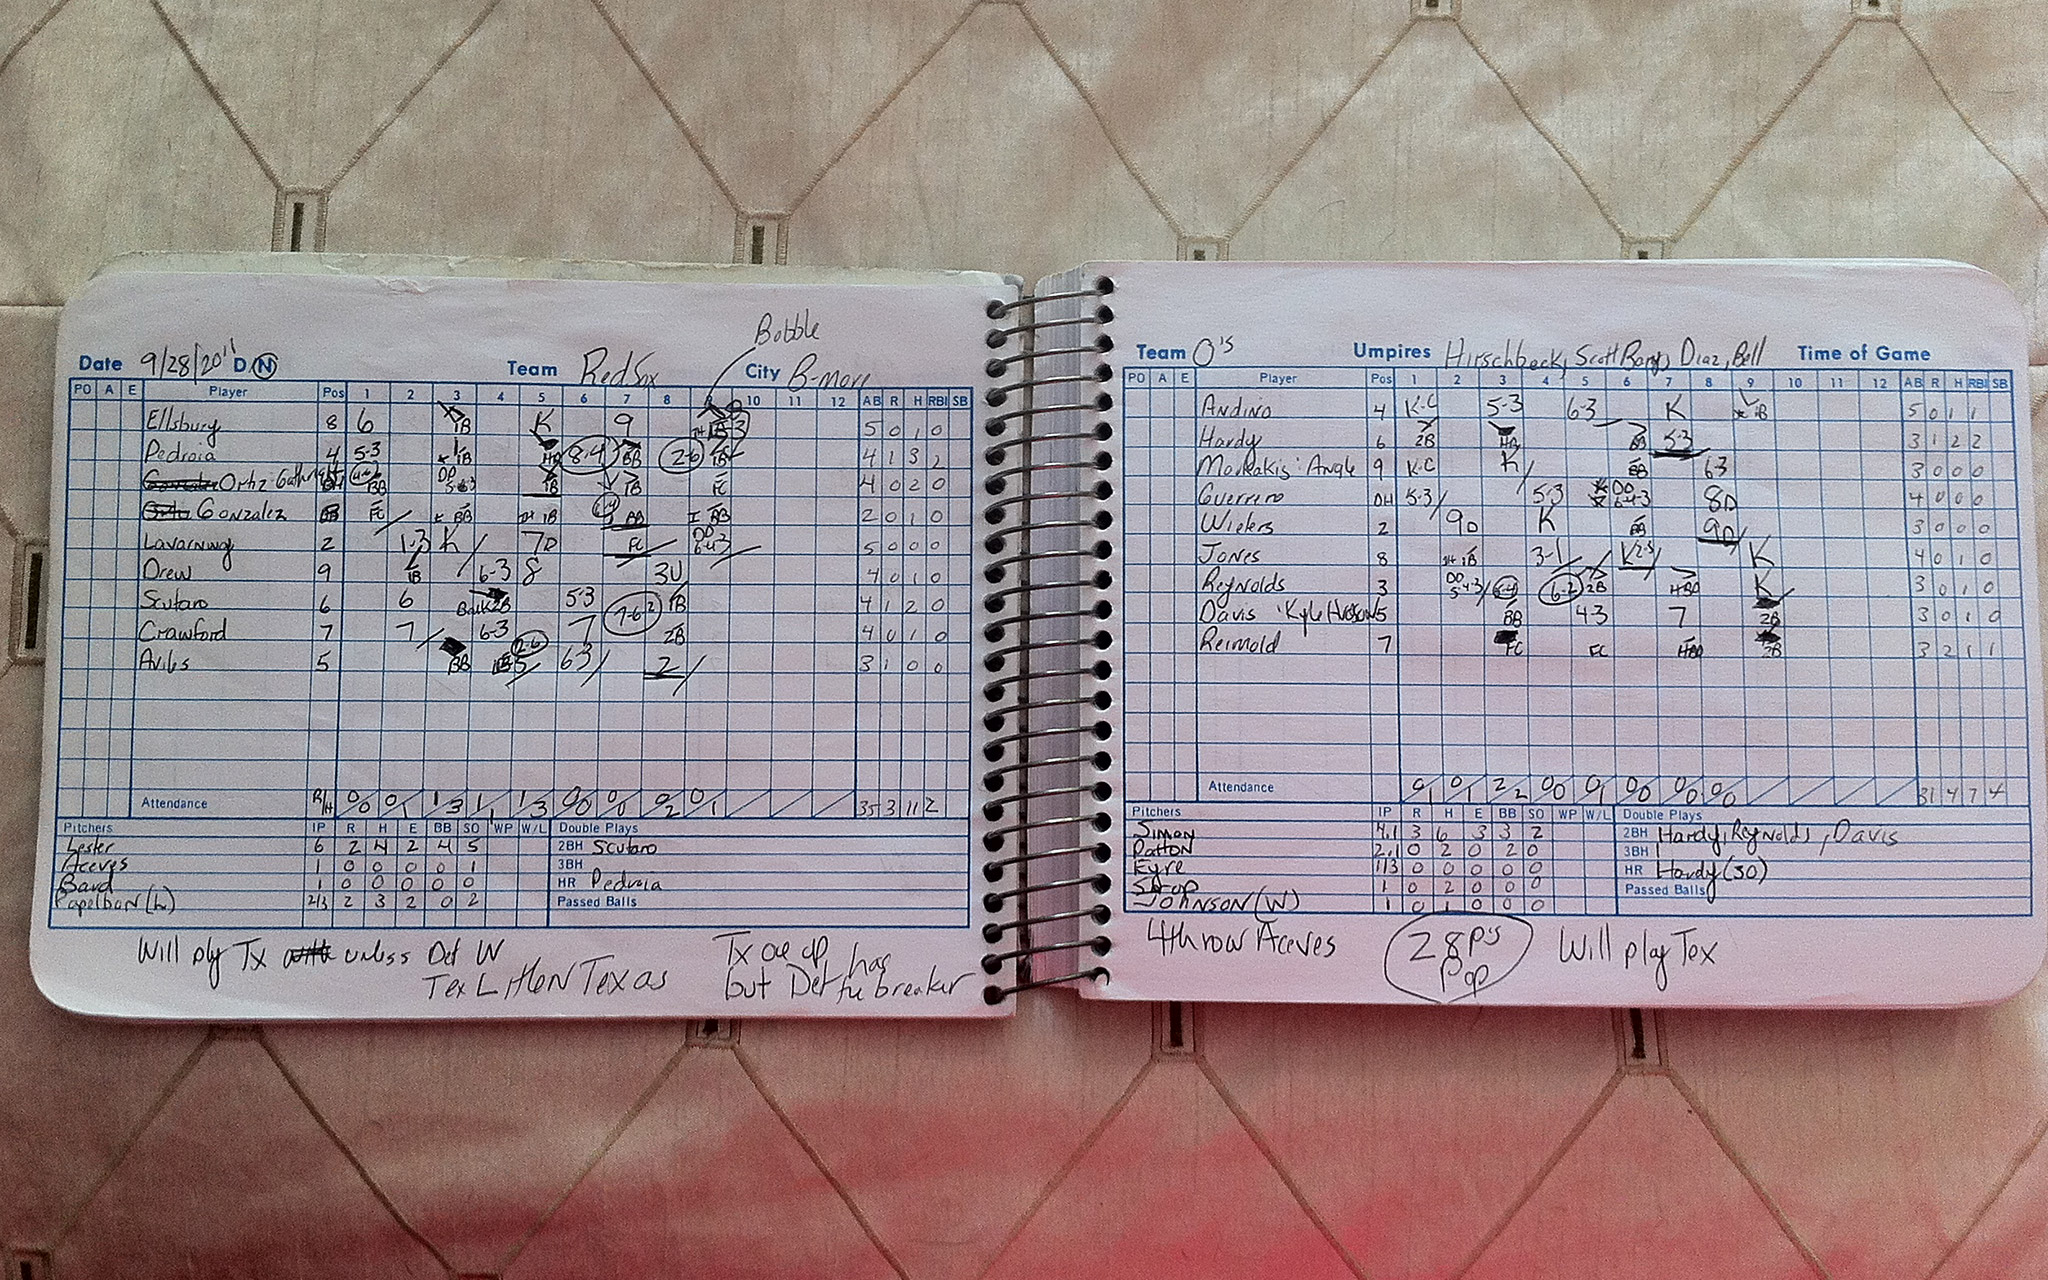 Bobble
Date 9/28/2011 D N Team Red Sox City B-more
PO A E Player Pos 1 2 3 4 5 6 7 8 9 10 11 12 AB R H RBI SB
Ellsbury 8 6 1B K 9 5 0 1 0
Pedroia 4 5-3 1B HR 8-4 BB 2-6 1B 4 1 3 2
Ortiz DH BB DP 5-6-3 1B 1B FC 4 0 2 0
Gonzalez FC BB 1B BB I BB 2 0 1 0
Lavarnway 2 1-3 K 7D FC DP 6-4-3 5 0 0 0
Drew 9 1B 6-3 8 3U 4 0 1 0
Scutaro 6 6 Balk 2B 5-3 7-6-2 1B 4 1 2 0
Crawford 7 7 6-3 2-6 7 2B 4 0 1 0
Aviles 5 BB 5 63 2 3 1 0 0
Attendance R/H 0/0 0/1 1/3 1/1 1/3 0/0 0/0 0/2 0/1 35 3 11 2
Pitchers IP R H E BB SO WP W/L Double Plays
Lester 6 2 4 2 4 5 2BH Scutaro
Aceves 1 0 0 0 0 1 3BH
Bard 1 0 0 0 0 0 HR Pedroia
Papelbon (L) 2/3 2 3 2 0 2 Passed Balls
Will ply Tx unless Det W
Tex L then Texas
Tx one up, has
but Det tie breaker
Team O's Umpires Hirschbeck, Scott Barry, Diaz, Bell Time of Game
PO A E Player Pos 1 2 3 4 5 6 7 8 9 10 11 12 AB R H RBI SB
Andino 4 K-C 5-3 6-3 K 1B 5 0 1 1
Hardy 6 2B HR BB 5-3 3 1 2 2
Markakis: Angle 9 K-C K BB 63 3 0 0 0
Guerrero DH 5-3 5-3 DP 6-4-3 8D 4 0 0 0
Wieters 2 9D K BB 9D 3 0 0 0
Jones 8 1B 3-1 K 2-3 K 4 0 1 0
Reynolds 3 DP 5-4-3 6-4 6-2 2B HBP K 3 0 1 0
Davis Kyle Hudson 5 BB 4-3 7 2B 3 0 1 0
Reimold 7 FC FC HBP 2B 3 2 1 1
Attendance 0/1 0/1 2/2 0/0 0/1 0/0 0/0 0/0 31 4 7 4
Pitchers IP R H E BB SO WP W/L Double Plays
Simon 4.1 3 6 3 3 2 2BH Hardy, Reynolds, Davis
Patton 2.1 0 2 0 2 0 3BH
Eyre 1/3 0 0 0 0 0 HR Hardy (30)
Strop 1 0 2 0 0 0 Passed Balls
Johnson (W) 1 0 1 0 0 0
4th row Aceves
28 P's
Pap
Will play Tex